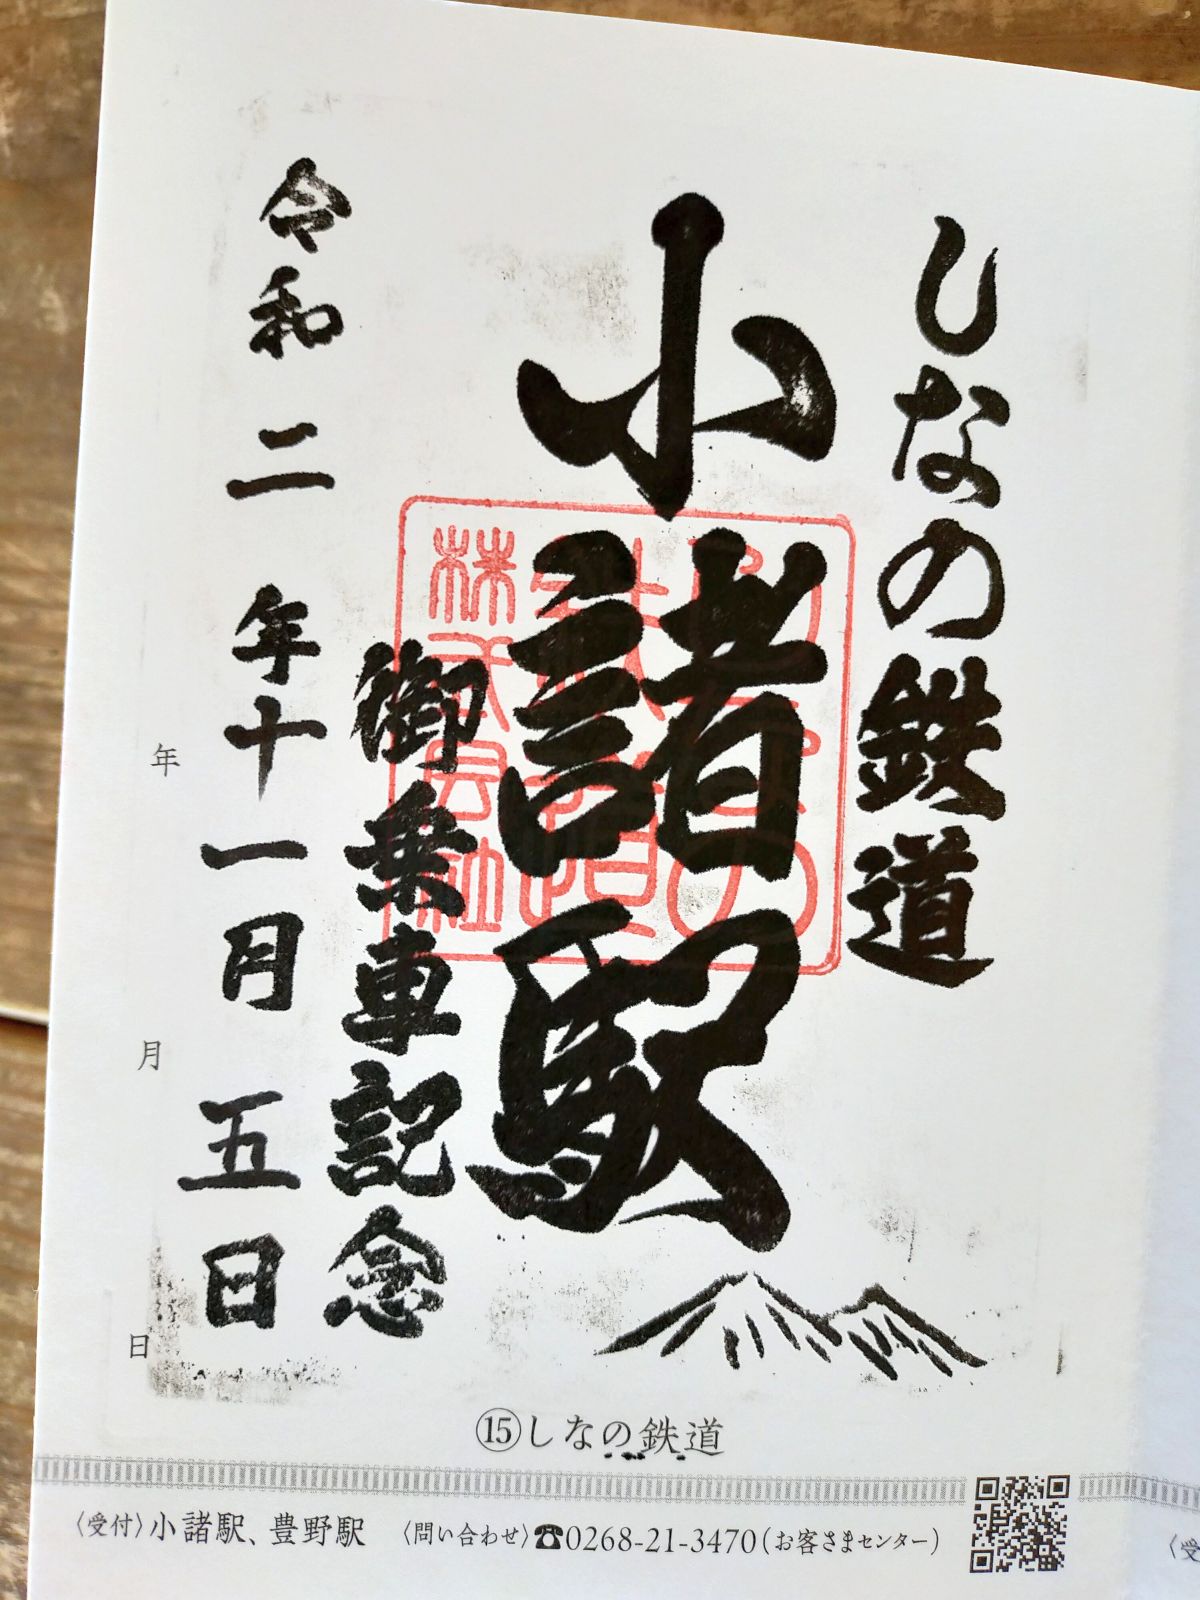 しなの鉄道
小諸駅
御乗車記念
令和二年十一月五日
株式会社
年
月
日
⑮しなの鉄道
〈受付〉小諸駅、豊野駅 〈問い合わせ〉☎0268-21-3470(お客さまセンター)
〈受